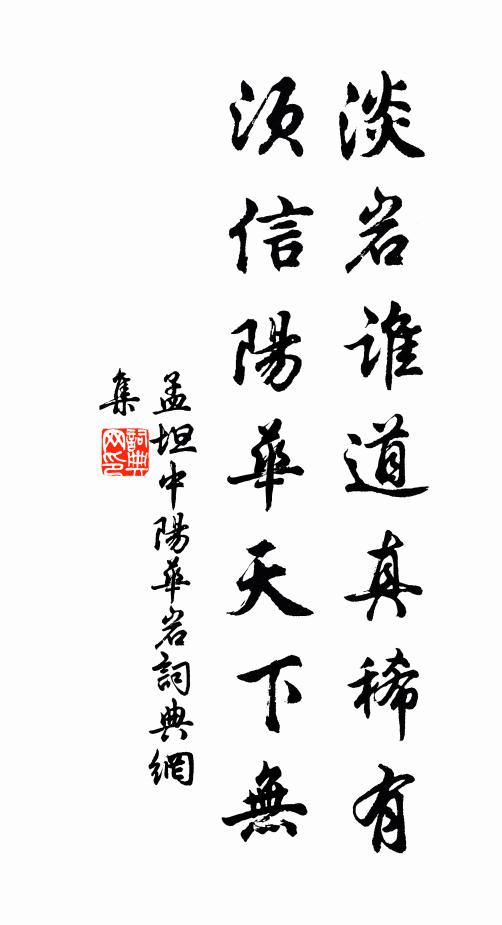 淡岩誰道真稀有
須信陽華天下無
孟坦中陽華岩詞典網
集
詞典
网印